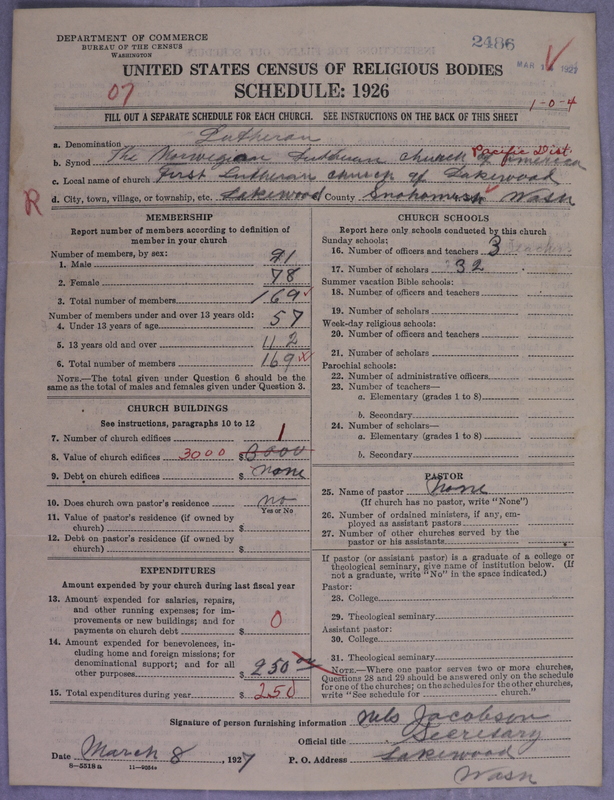 DEPARTMENT OF COMMERCE
BUREAU OF THE CENSUS
WASHINGTON
2486
MAR 1 1927
UNITED STATES CENSUS OF RELIGIOUS BODIES
07
SCHEDULE: 1926
1-0-4
FILL OUT A SEPARATE SCHEDULE FOR EACH CHURCH. SEE INSTRUCTIONS ON THE BACK OF THIS SHEET
a. Denomination Lutheran
Pacific Dist.
b. Synod The Norwegian Lutheran church of America
c. Local name of church First Lutheran church of Lakewood
R
d. City, town, village, or township, etc. Lakewood County Snohomish Wash
MEMBERSHIP
Report number of members according to definition of
member in your church
Number of members, by sex:
1. Male 91
2. Female 78
3. Total number of members 169
Number of members under and over 13 years old:
4. Under 13 years of age 57
5. 13 years old and over 112
6. Total number of members 169
NOTE.—The total given under Question 6 should be the
same as the total of males and females given under Question 3.
CHURCH BUILDINGS
See instructions, paragraphs 10 to 12
7. Number of church edifices 1
8. Value of church edifices 3000 $ 3000
9. Debt on church edifices $ none
10. Does church own pastor's residence no
Yes or No
11. Value of pastor's residence (if owned by
church) $
12. Debt on pastor's residence (if owned by
church) $
EXPENDITURES
Amount expended by your church during last fiscal year
13. Amount expended for salaries, repairs,
and other running expenses; for im-
provements or new buildings; and for
payments on church debt $ 0
14. Amount expended for benevolences, in-
cluding home and foreign missions; for
denominational support; and for all
other purposes $ 250 00
15. Total expenditures during year $ 250
CHURCH SCHOOLS
Report here only schools conducted by this church
Sunday schools:
16. Number of officers and teachers 3 Teachers
17. Number of scholars 32
Summer vacation Bible schools:
18. Number of officers and teachers
19. Number of scholars
Week-day religious schools:
20. Number of officers and teachers
21. Number of scholars
Parochial schools:
22. Number of administrative officers
23. Number of teachers—
a. Elementary (grades 1 to 8)
b. Secondary
24. Number of scholars—
a. Elementary (grades 1 to 8)
b. Secondary
PASTOR
25. Name of pastor None
(If church has no pastor, write "None")
26. Number of ordained ministers, if any, em-
ployed as assistant pastors
27. Number of other churches served by the
pastor or his assistants
If pastor (or assistant pastor) is a graduate of a college or
theological seminary, give name of institution below. (If
not a graduate, write "No" in the space indicated.)
Pastor:
28. College
29. Theological seminary
Assistant pastor:
30. College
31. Theological seminary
NOTE.—Where one pastor serves two or more churches,
Questions 28 and 29 should be answered only on the schedule
for one of the churches; on the schedules for the other churches,
write "See schedule for church."
Signature of person furnishing information Nels Jacobson
Official title Secretary
Date March 8, 1927 P. O. Address Lakewood
8—5518 a 11—9034
Wash